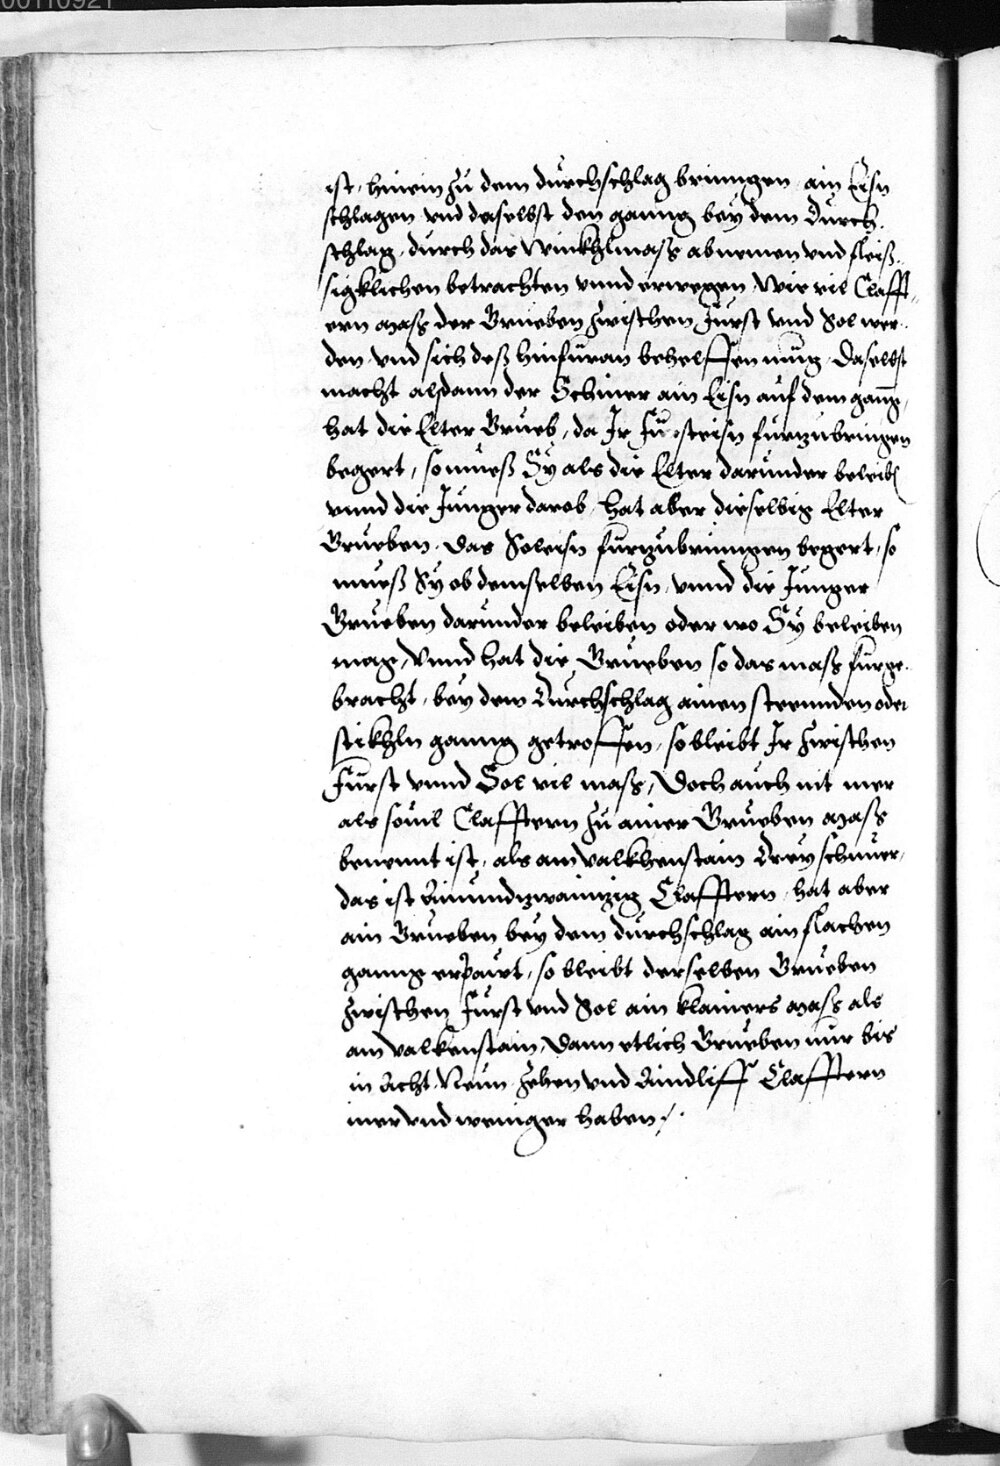 00110921
ist, hinein zu dem durchschlag bringen, ain Eisn
schlagen vnd daselbst den ganng bey dem Durch-
schlag, durch das Winkhlmass abnemen vnd fleiß-
sigklichen betrachten vnnd erwegen, Wie vil Clafft-
ern mass der Grueben zwischen Fürst vnd Sol wer-
den vnd sich deß hinfüran behelffen mug, Daselbst
macht alßdann der Schiner ain Eisn auf dem ganng,
hat die Elter Grueb, da Ir Fürsteisn fürzubringen
begert, so mueß Sy als die Elter darunder beleiben
vnnd die Junger darob, hat aber dieselbig Elter
Grueben, das Soleisn fürzubringen begert, so
mueß Sy ob demselben Eisn, vnnd die Junger
Grueben darunder beleiben oder wo Sy beleiben
mag, Vnnd hat die Grueben so das mass fürge-
bracht, bey dem Durchschlag ainen steennden oder
stikhln ganng getroffen, so bleibt Ir zwischen
Fürst vnnd Sol vil mass, Doch auch nit mer
als souil Clafftern zu ainer Grueben mass
benennt ist, als am valkhenstain Drey schnuer,
das ist Ainundzwainzig Clafftern, hat aber
ain Grueben bey dem durchschlag ain flachen
ganng erpawt, so bleibt derselben Grueben
zwischen Fürst vnd Sol ain klainers mass als
am valkenstain, Dann etlich Grueben nur bis
in Acht, Neun, Zehen vnd Aindliff Clafftern
mer vnd weniger haben /.